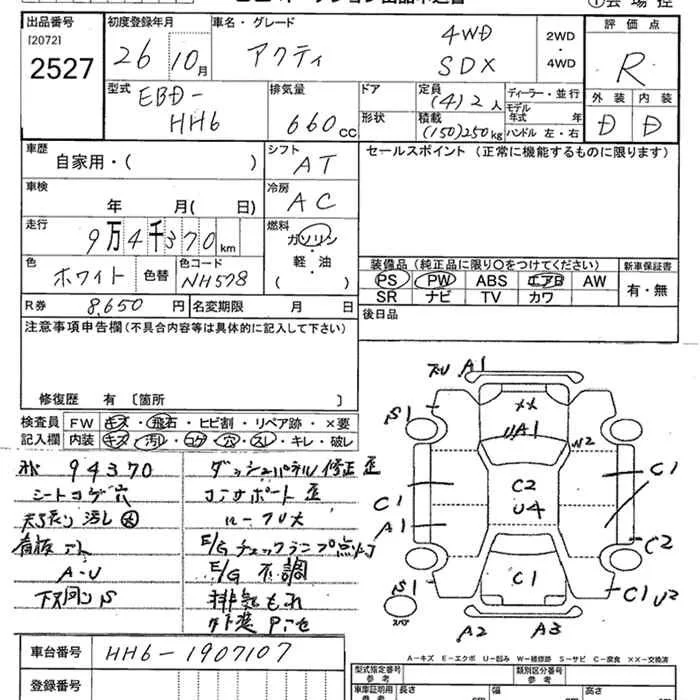 出品番号
[2072]
2527
初度登録年月
26 10月
車名・グレード
アクティ
4WD
SDX
2WD
・
4WD
評価点
R
型式
EBD-
HH6
排気量
660cc
ドア
形状
定員
(4)2人
積載
(150)250kg
ディーラー・並行
モデル年式 年
ハンドル 左・右
外装 内装
D D
車歴
自家用・( )
シフト
AT
セールスポイント(正常に機能するものに限ります)
車検
年 月( 日)
冷房
AC
走行
9万4千370km
燃料
ガソリン
軽・油
( )
色
ホワイト
色替
色コード
NH578
装備品(純正品に限り〇をつけてください)
PS PW ABS エアB AW
SR ナビ TV カワ
新車保証書
有・無
R券 8,650円
名変期限 月 日
後日品
注意事項申告欄(不具合内容等は具体的に記入して下さい)
修復歴 有 〔箇所 〕
検査員
記入欄
FW キズ・飛石・ヒビ割・リペア跡・×要
内装 キズ・汚れ・コゲ・穴・スレ・キレ・破レ
94370
シートコゲ穴
天張り汚し大
看板アト
A-U
下廻りS
ダッシュパネル修正歪
コアサポート歪
ルーフU大
E/Gチェックランプ点灯
E/G不調
排気もれ
A1
S1
XX
UA1
U2
C1
A1
C2
U4
C1
C2
S1
C1
C1 U2
A2
A3
スペア
A-キズ E-エクボ U-凹み W-補修跡 S-サビ C-腐食 XX-交換済
車台番号
HH6-1907107
登録番号
型式指定番号
参考
類別区分番号
参考
車庫証明用
参考
長さ
幅
高さ